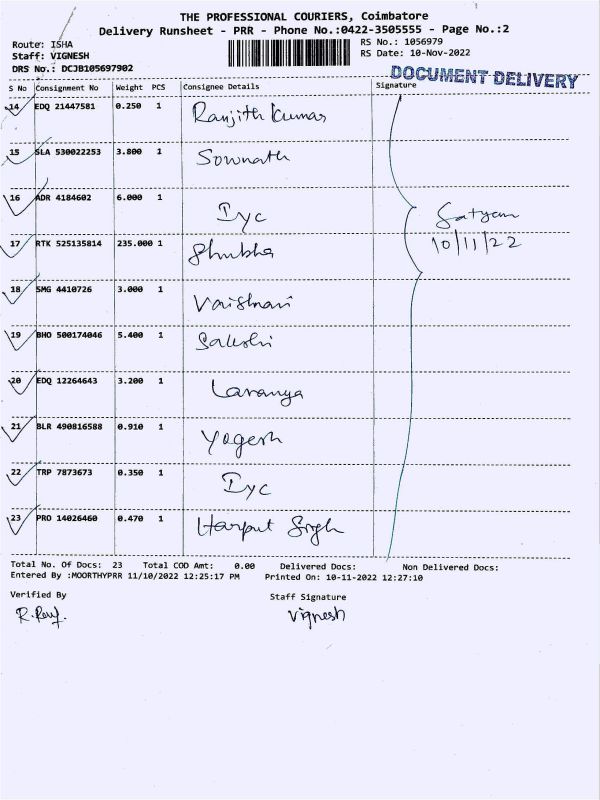 THE PROFESSIONAL COURIERS, Coimbatore
Delivery Runsheet - PRR - Phone No.:0422-3505555 - Page No.:2
Route: ISHA
Staff: VIGNESH
DRS No.: DCJB105697902
RS No.: 1056979
RS Date: 10-Nov-2022
DOCUMENT DELIVERY
S No Consignment No Weight PCS Consignee Details Signature
14 EDQ 21447581 0.250 1 Ranjith Kumar
15 SLA 530022253 3.800 1 Sownath
16 ADR 4184602 6.000 1 Iyc
Satyam
10/11/22
17 RTK 525135814 235.000 1 Shubha
18 SMG 4410726 3.000 1 Vaishnavi
19 BHO 500174046 5.400 1 Sakshi
20 EDQ 12264643 3.200 1 Laranya
21 BLR 490816588 0.910 1 Yogesh
22 TRP 7873673 0.350 1 Iyc
23 PRO 14026460 0.470 1 Harput Singh
Total No. Of Docs: 23 Total COD Amt: 0.00 Delivered Docs: Non Delivered Docs:
Entered By :MOORTHYPRR 11/10/2022 12:25:17 PM Printed On: 10-11-2022 12:27:10
Verified By Staff Signature
Vignesh